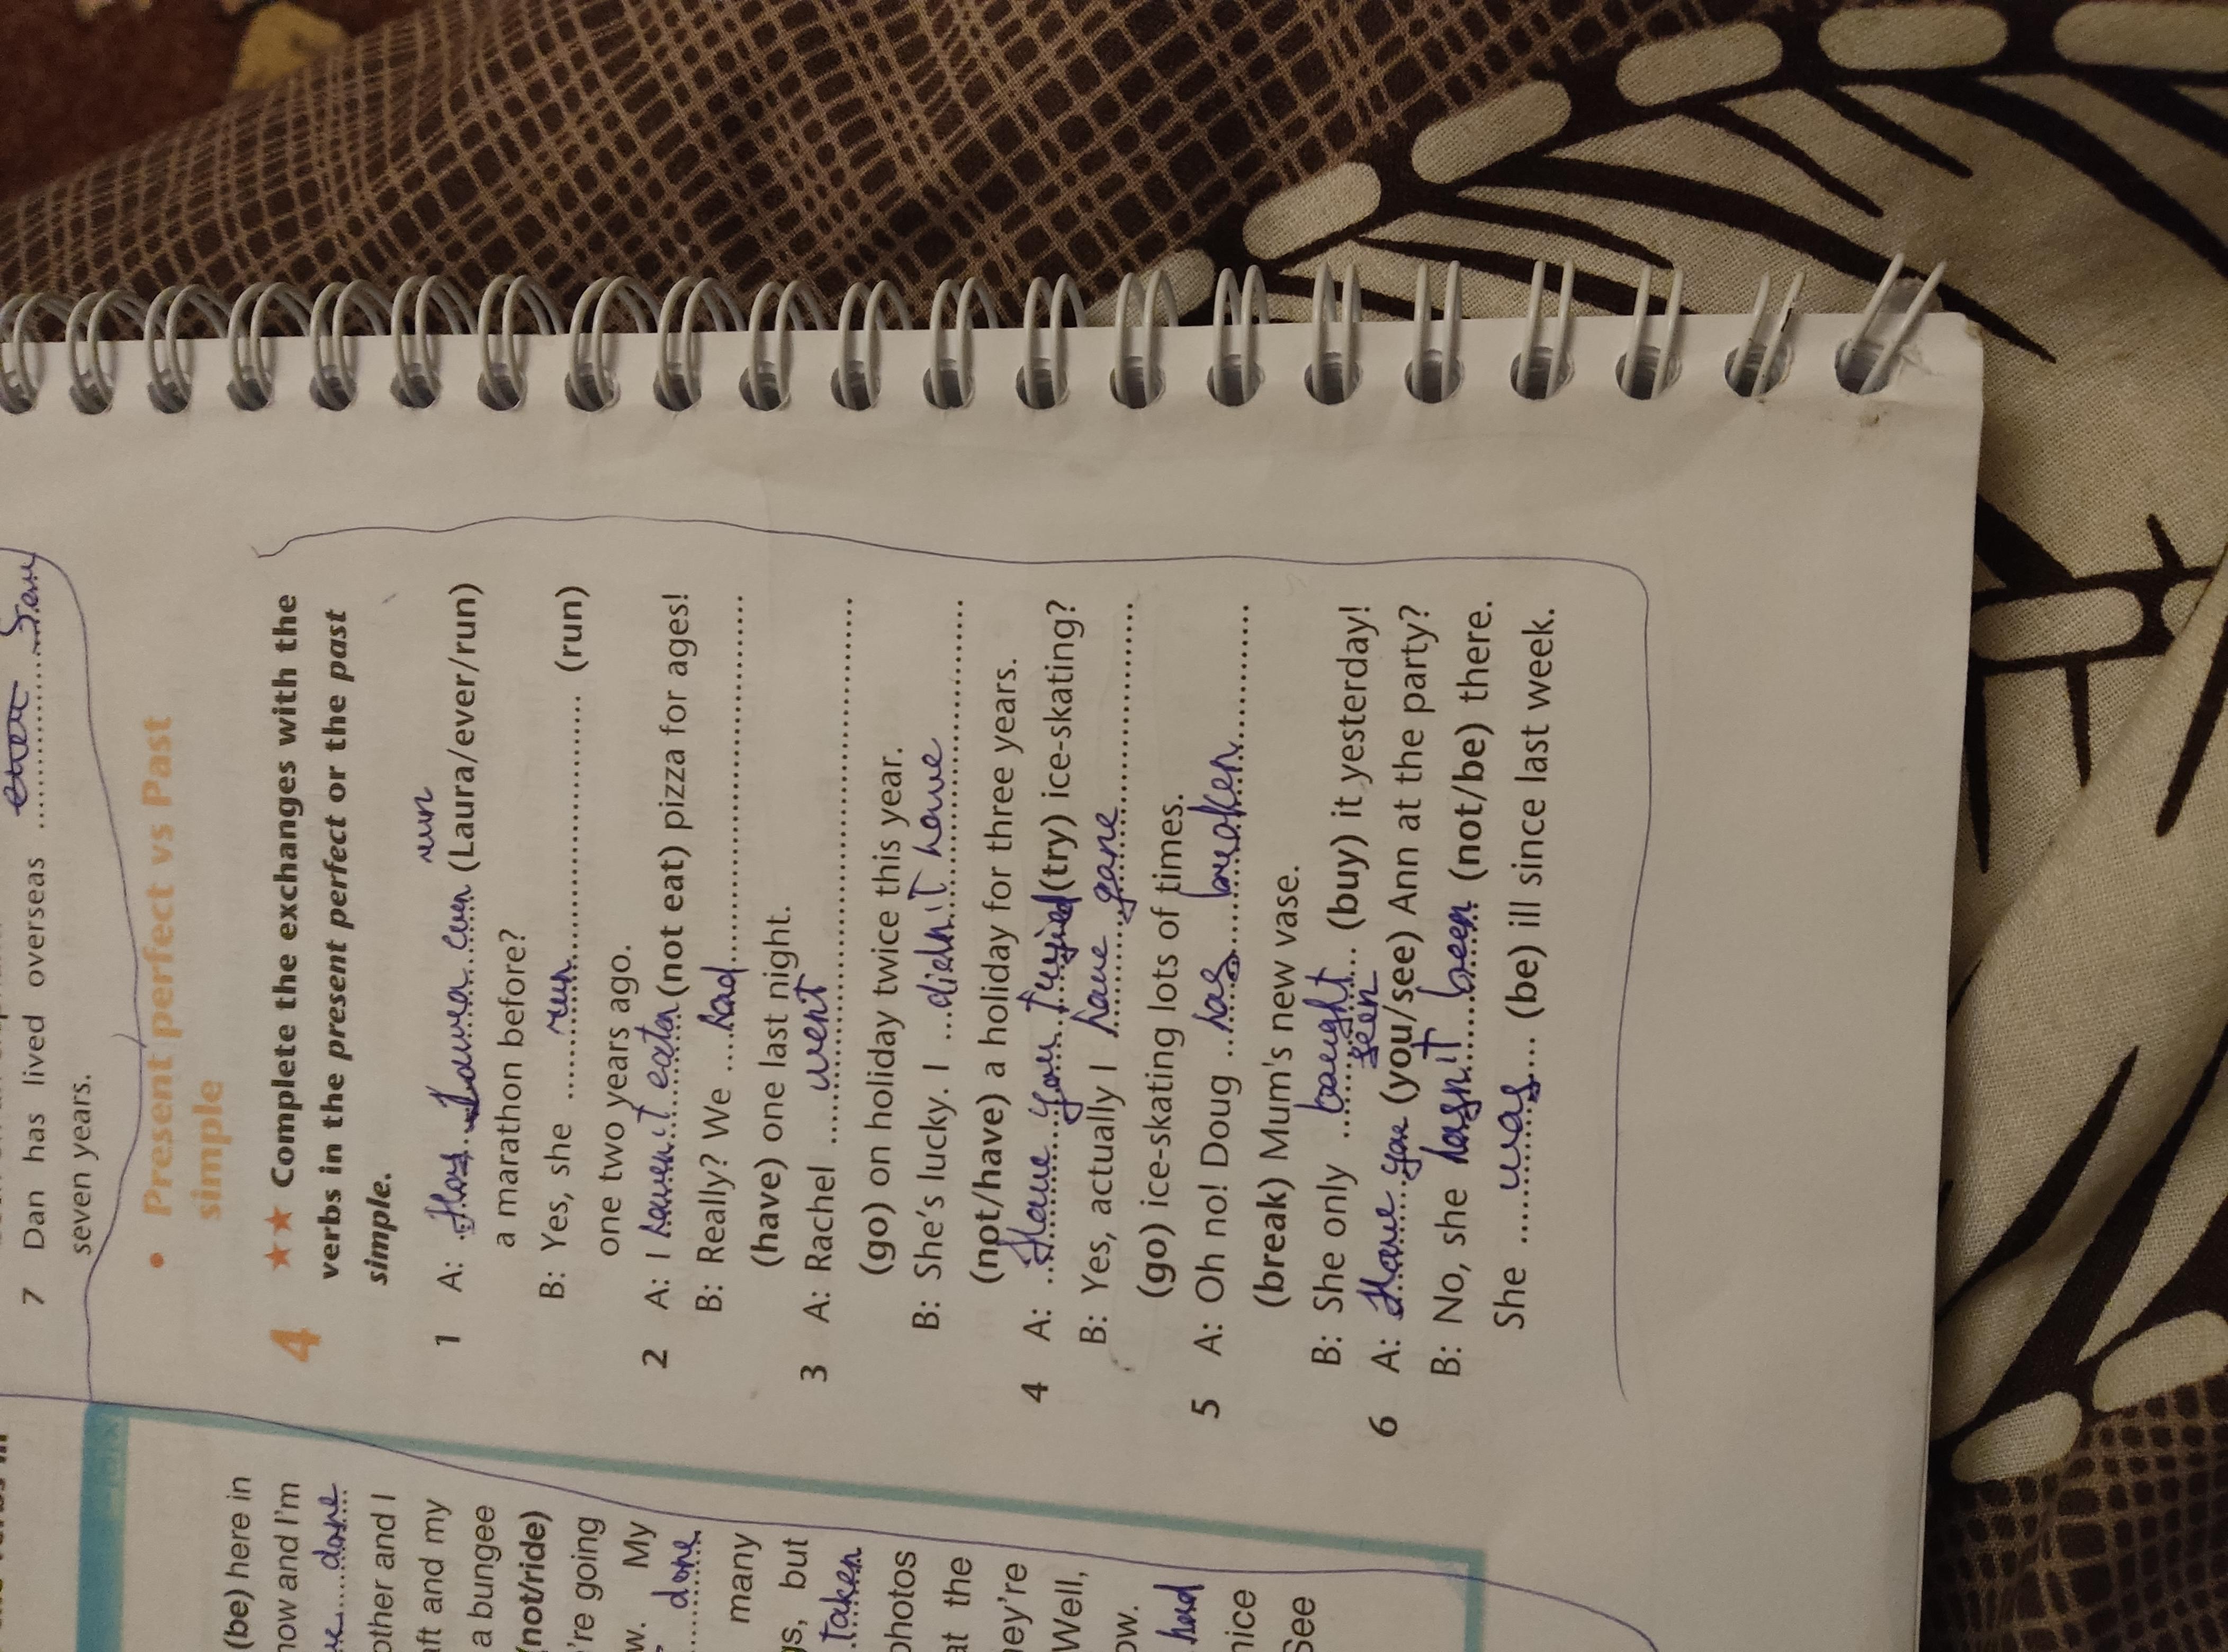 7 Dan has lived overseas ..........
seven years.
• Present perfect vs Past
simple
4 ★★ Complete the exchanges with the
verbs in the present perfect or the past
simple.
run
1 A: Has Laura ever (Laura/ever/run)
a marathon before?
B: Yes, she ...... run .......... (run)
one two years ago.
2 A: I haven't eaten (not eat) pizza for ages!
B: Really? We .... had ..........
(have) one last night.
3 A: Rachel ..... went ..........
(go) on holiday twice this year.
B: She's lucky. I ... didn't have ..........
(not/have) a holiday for three years.
4 A: ... Have you (try) ice-skating?
B: Yes, actually I have gone ..........
(go) ice-skating lots of times.
5 A: Oh no! Doug .. has .......... 
(break) Mum's new vase.
B: She only ... bought ... (buy) it yesterday!
seen
6 A: Have you (you/see) Ann at the party?
B: No, she hasn't been (not/be) there.
She ..... was .... (be) ill since last week.
(be) here in
now and I'm
done
other and I
aft and my
a bungee
(not/ride)
're going
w. My
done
many
gs, but
taken
photos
at the
ey're
Well,
ow.
nice
See